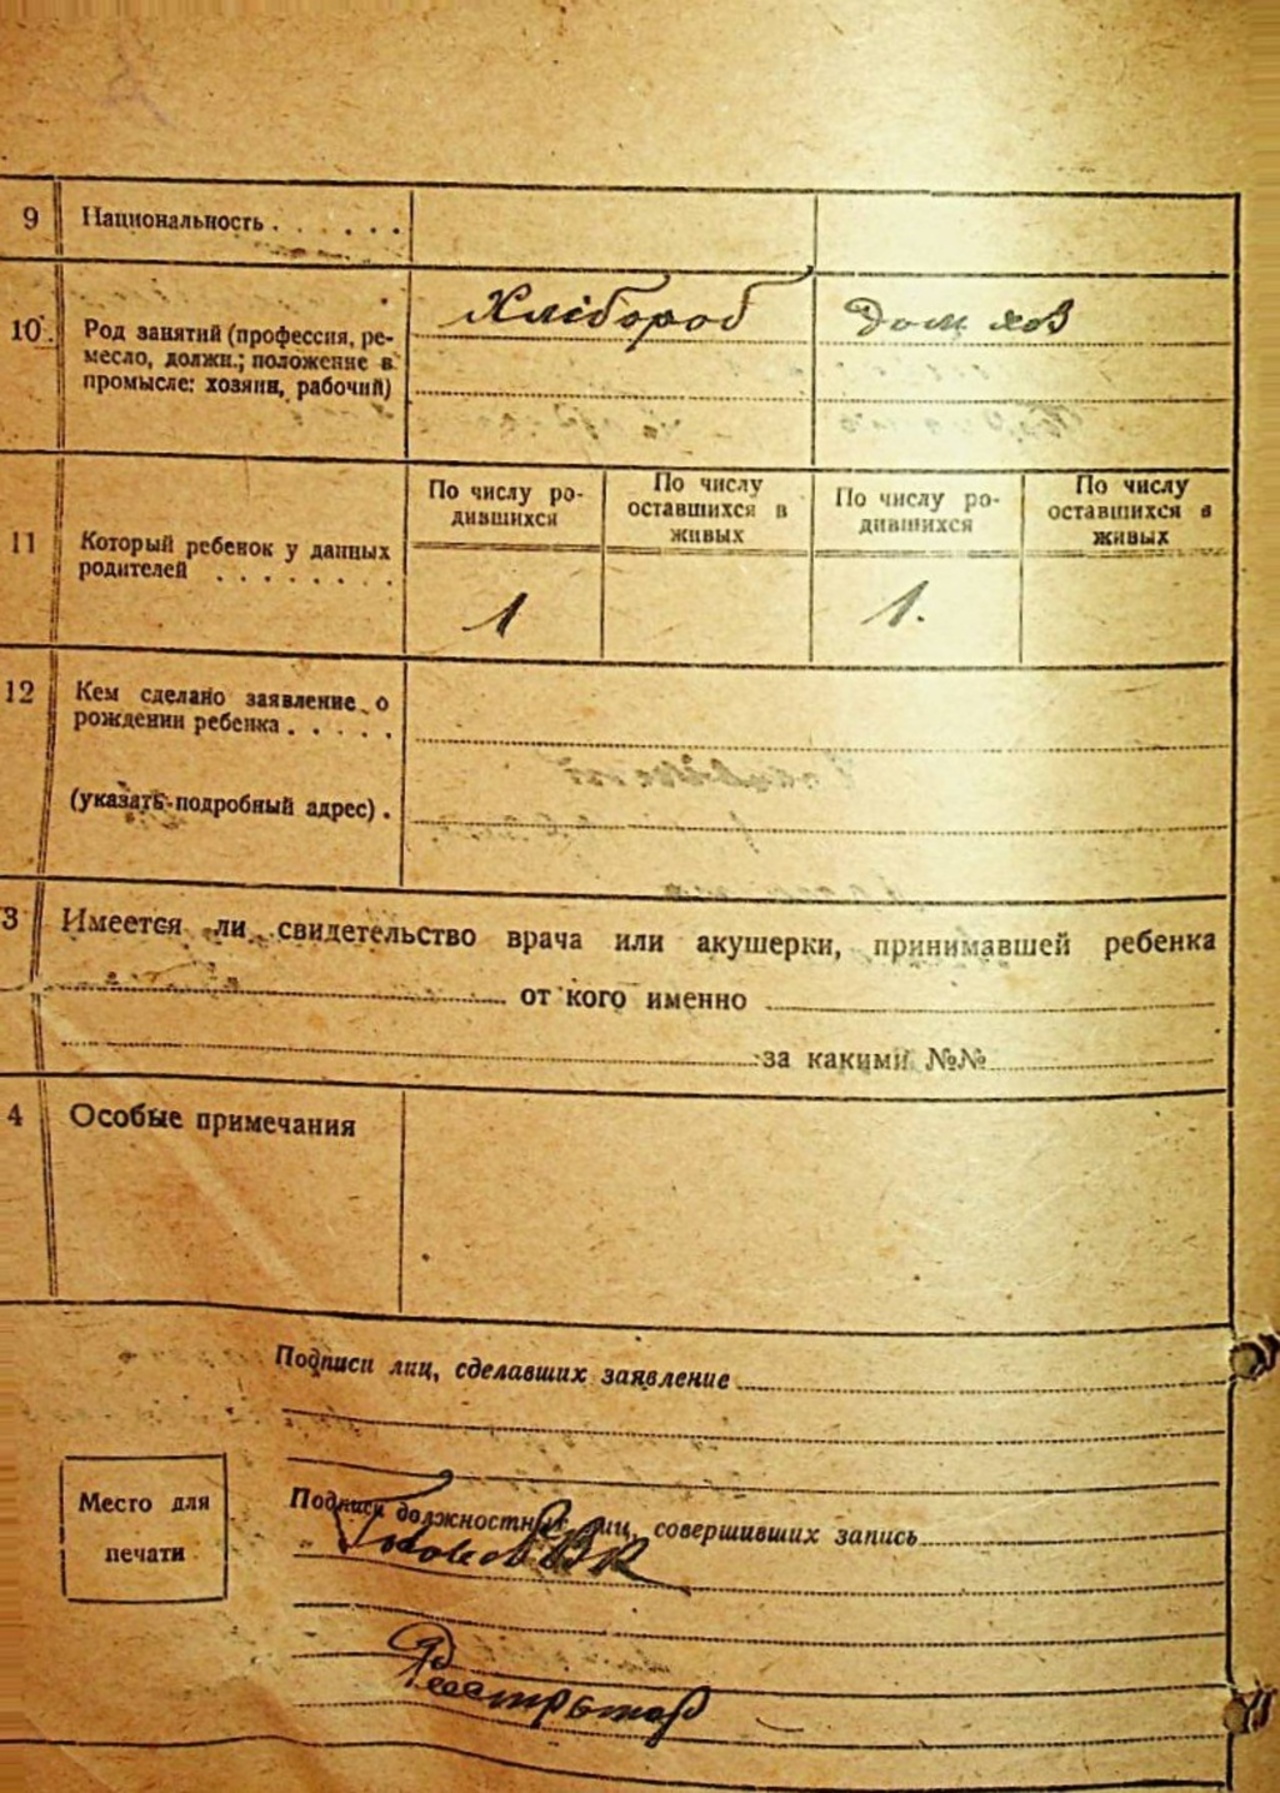 9 Национальность . . . . . .
10. Род занятий (профессия, ре-
месло, должн.; положение в
промысле: хозяин, рабочий)
Хлібороб
Дом хоз
11 Который ребенок у данных
родителей . . . . . . . .
По числу ро-
дившихся
По числу
оставшихся в
живых
По числу ро-
дившихся
По числу
оставшихся в
живых
1
1.
12 Кем сделано заявление о
рождении ребенка . . . . .
(указать подробный адрес) .
3 Имеется ли свидетельство врача или акушерки, принимавшей ребенка
от кого именно
за какими №№
4 Особые примечания
Подписи лиц, сделавших заявление
Место для
печати
Подписи должностных лиц, совершивших запись
Голова ВК
Реестратор